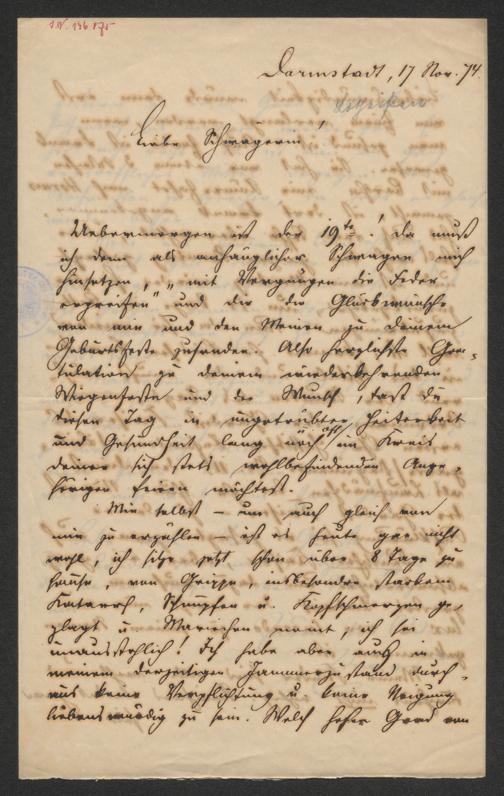 Darmstadt, 17 Nov. 74.
Liebe Schwägerin!
Uebermorgen ist der 19te! Da muß
ich denn als anhänglicher Schwager mich
hinsetzen, „mit Vergnügen die Feder
ergreifen" und dir die Glückwünsche
von mir und den Meinen zu deinem
Geburtsfeste zusenden. Also herzlichste Gra-
tulation zu deinem wiederkehrenden
Wiegenfeste und der Wunsch, daß du
diesen Tag in ungetrübter Heiterkeit
und Gesundheit lang noch im Kreis
deiner sich stets wohlbefindenden Ange-
hörigen feiern möchtest.
Mir selbst – um auch gleich von
mir zu erzählen – ist es heute gar nicht
wohl, ich sitze jetzt schon über 8 Tage zu
Hause, von Grippe, insbesondre starkem
Katarrh, Schnupfen u. Kopfschmerzen ge-
plagt u. Mariechen meint, ich sei
unausstehlich! Ich habe aber auch in
meinem derzeitigen Jammerzustand durch-
aus keine Verpflichtung u. keine Neigung
liebenswürdig zu sein. Welch hoher Grad von